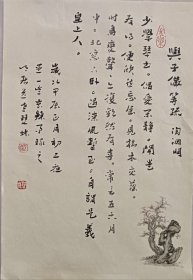 與子儼等疏 陶淵明
少學琴書偶愛閑靜開卷
有得便欣然忘食見樹木交蔭
時鳥變聲亦復歡然有喜常言五六月
中北窗下卧遇涼風暫至自謂是羲
皇上人
歲次甲辰正月初二